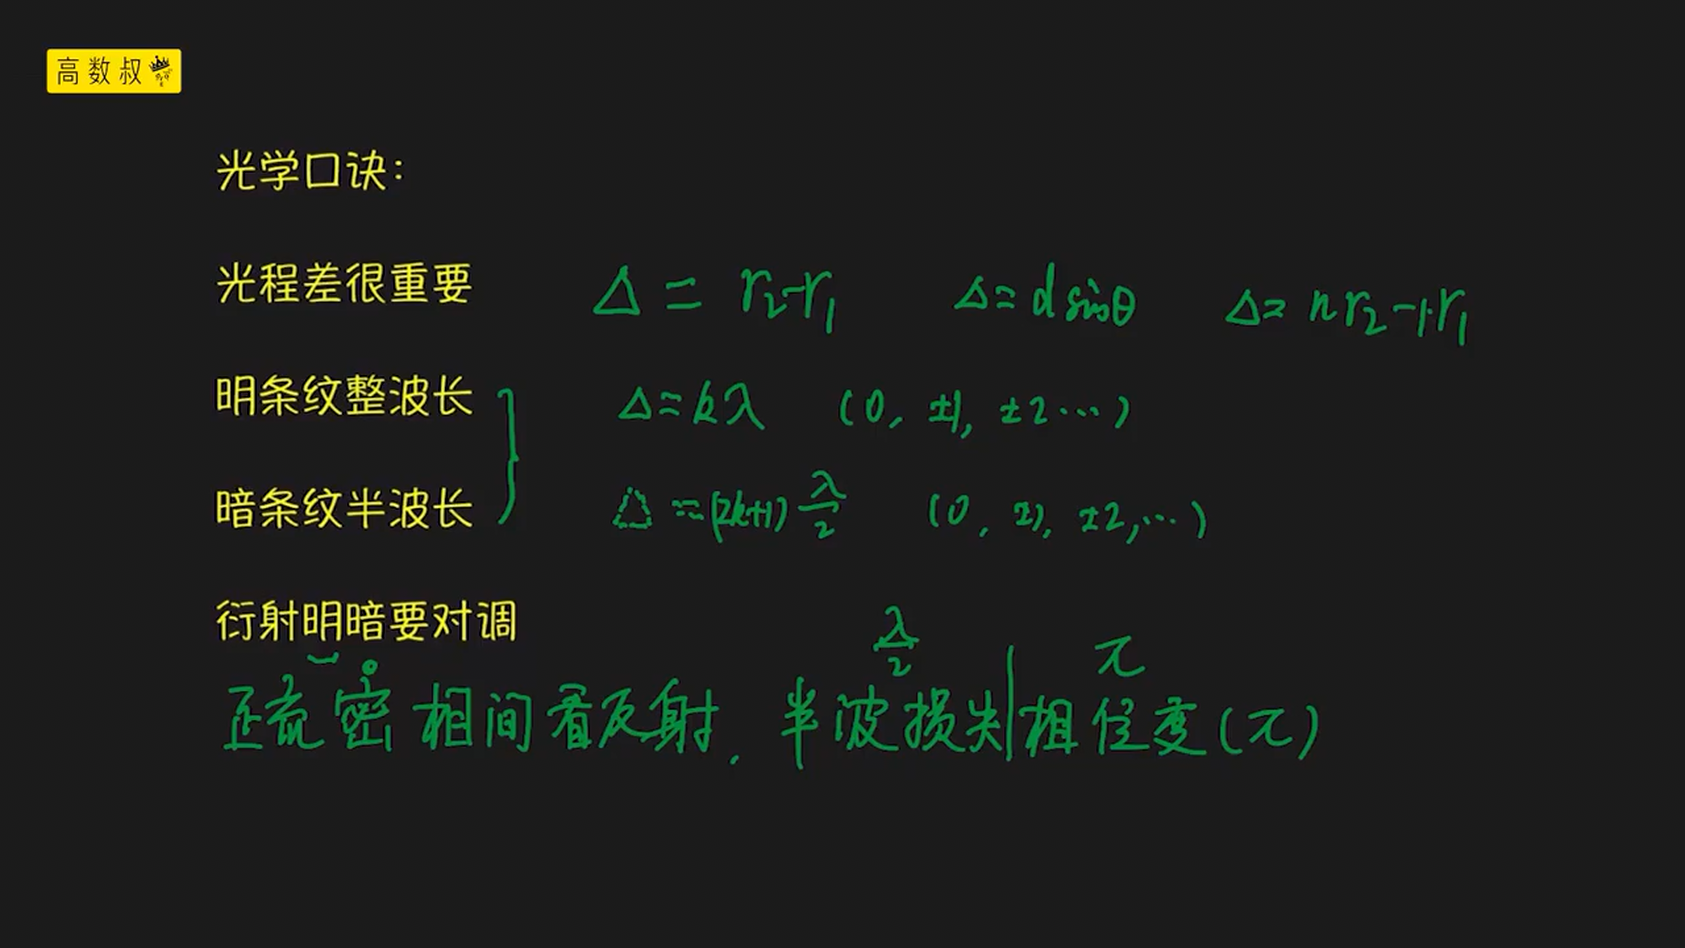 高数叔
光学口诀:
光程差很重要 Δ = r₂-r₁ Δ= d sinθ Δ= n r₂ -1·r₁
明条纹整波长 Δ=kλ (0, ±1, ±2 ···)
暗条纹半波长 Δ =(2k+1) λ/2 (0, ±1, ±2,···)
衍射明暗要对调
λ/2 π
疏密相间看反射, 半波损失|相位变(π)